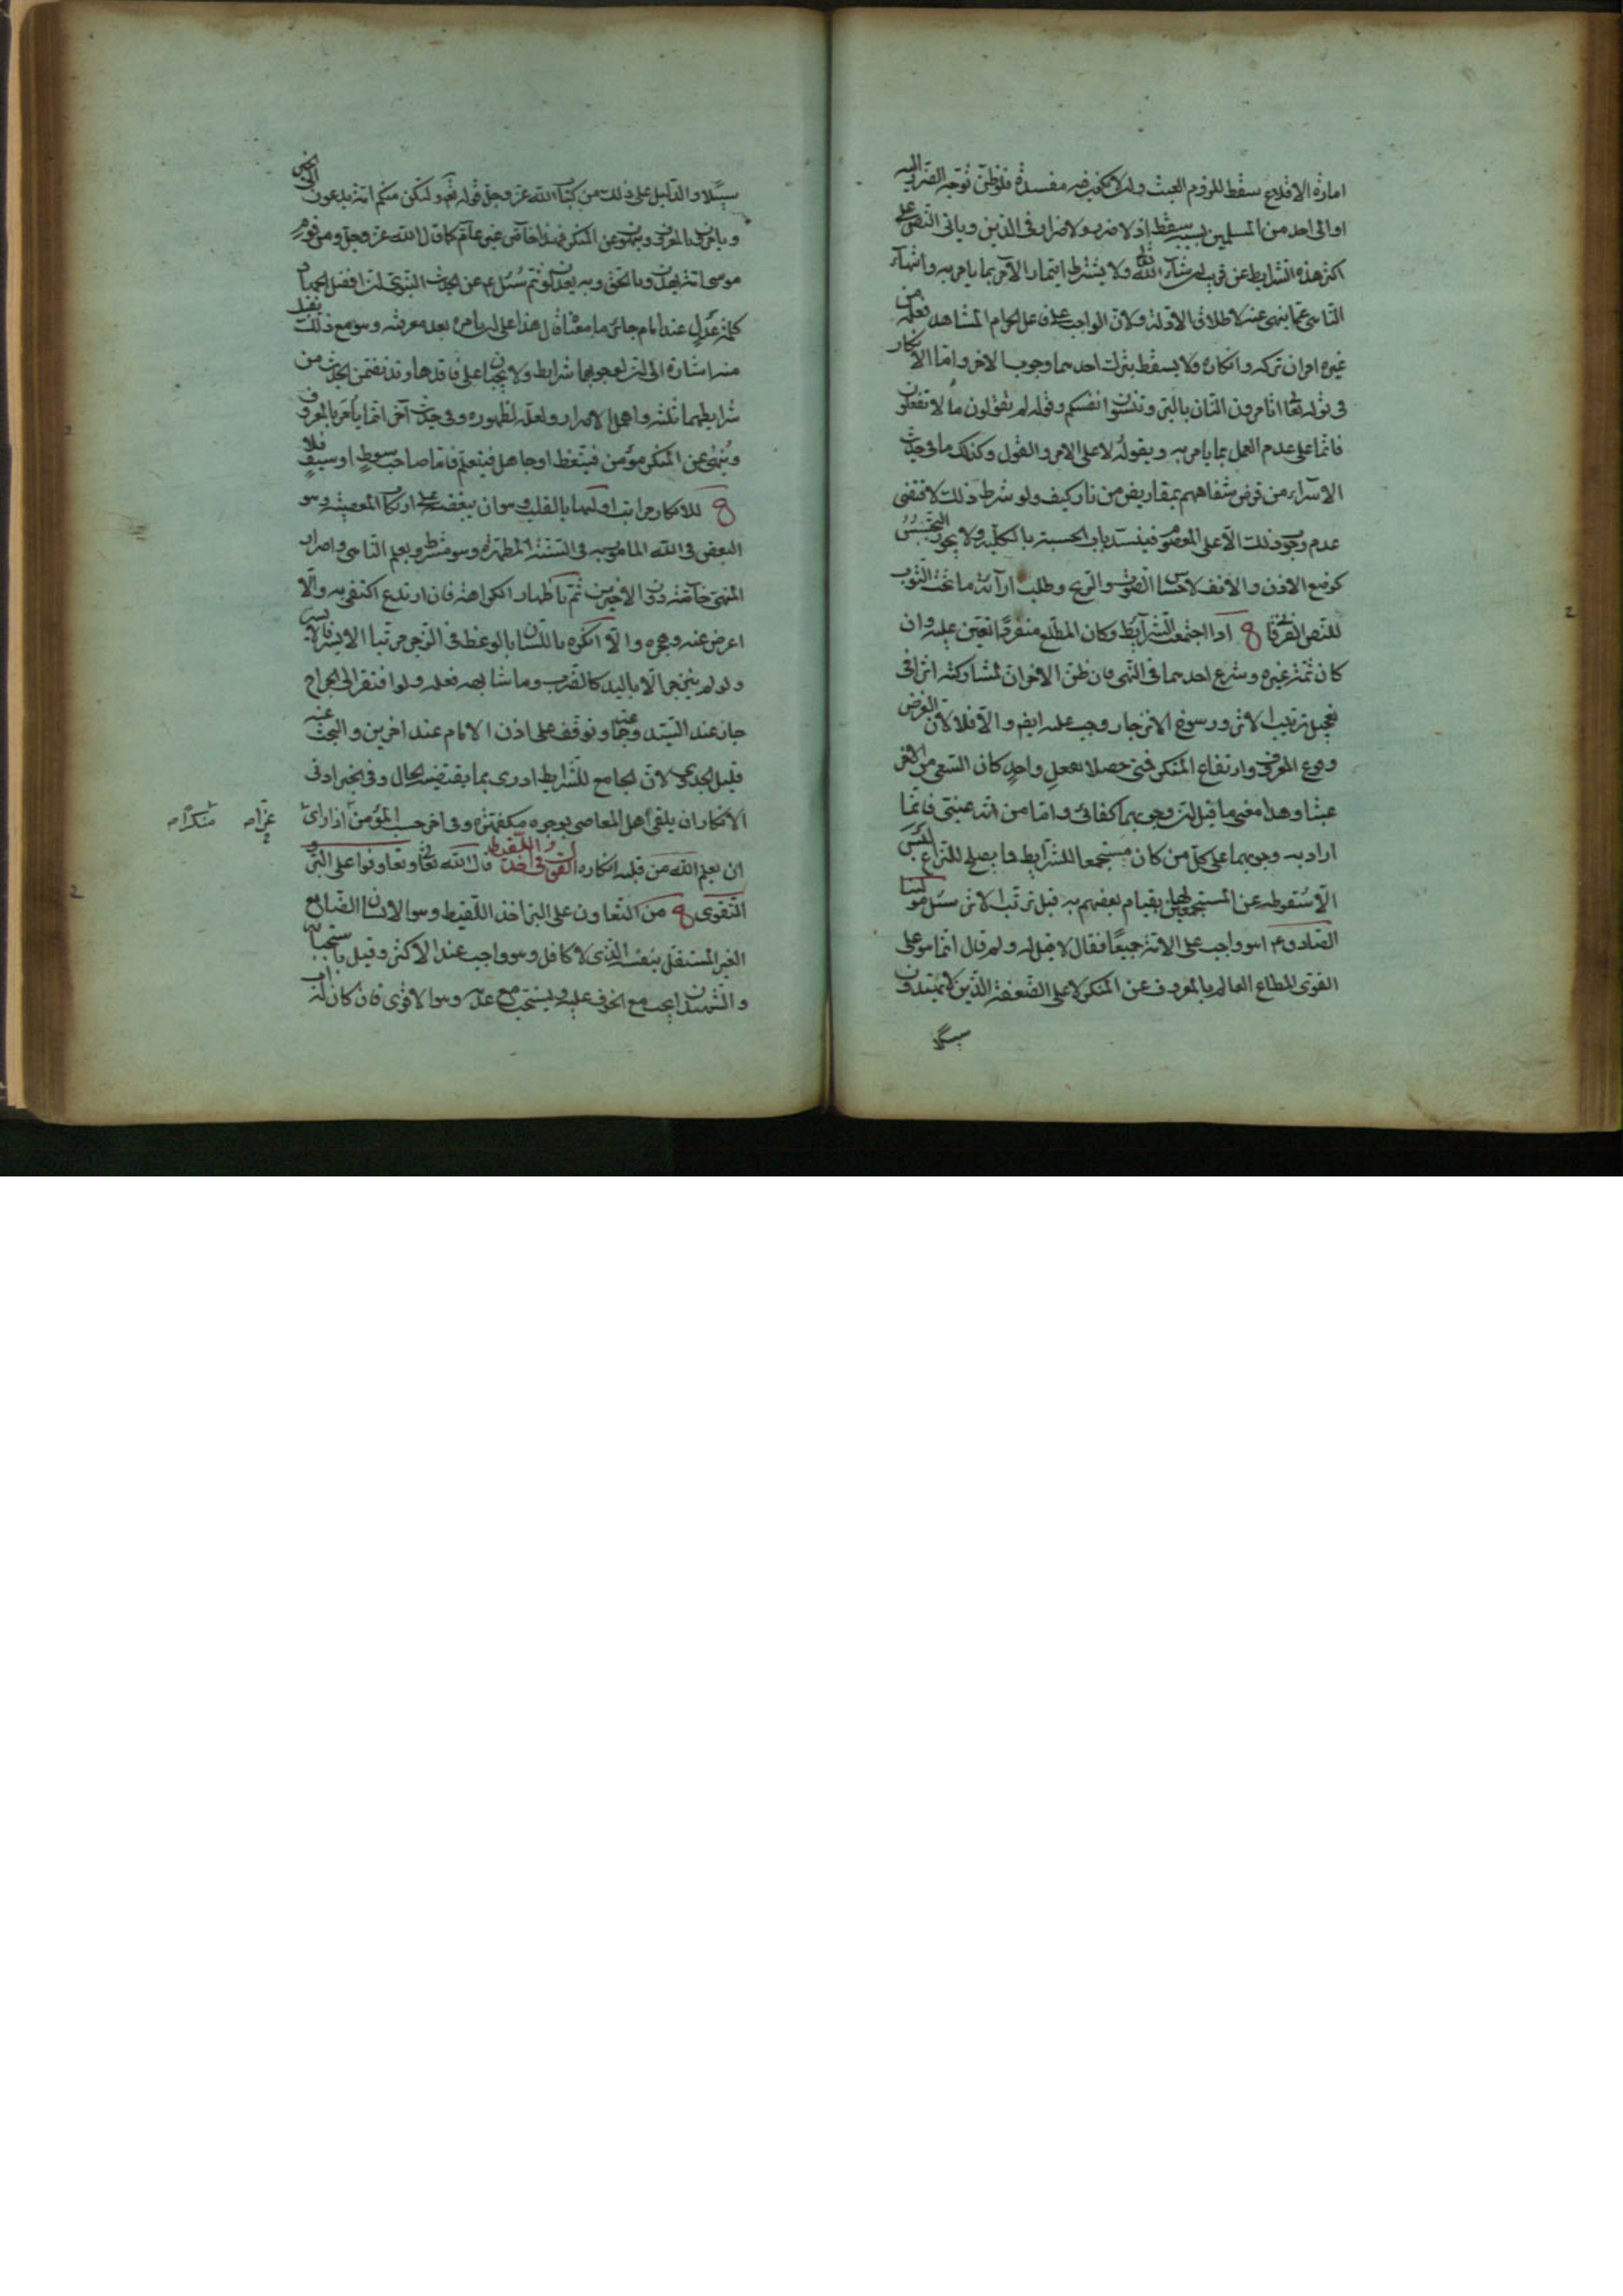 امارة الاقلاع سقط للزوم العبث وان لا يكون فيه مفسدة فلو ظن توجه الضرر اليه
او الى احد من المسلمين بسببه سقط اذ لا ضرر ولا ضرار في الدين وياتي النص على
اكثر هذه الشرايط عن قريب ان شاء الله تعالى ولا يشترط ايتمار الآمر بما يامر به وانتهاء
الناهي عما ينهى عنه لاطلاق الادلة ولان الواجب على فاعل الحرام المشاهد فعله من
غيره امران تركه وانكاره ولا يسقط بترك احدهما وجوب الاخر واما الانكار
في قوله تعا اتامرون الناس بالبر وتنسون انفسكم وقوله لم تقولون ما لا تفعلون
فانما على عدم العمل بما يامر به ويقوله لا على الامر والقول وكذلك ما في حديث
الاسراء من قرض شفاههم بمقاريض من نار كيف ولو شرط ذلك لاقتضى
عدم وجوب ذلك الا على المعصوم فينسد باب الحسبة بالكلية ولا يجوز التجسس
كوضع الاذن والانف لاحساس الصوت والريح وطلب اراءة ما تحت الثوب
للنص القرآني اذا اجتمعت الشرايط وكان المطلع منفردا تعين عليه وان
كان ثمة غيره وشرع احدهما في النهي فان ظن الاخر ان لمشاركته اثرا في
تعجيل ترتب الاثر ورسوخ الانزجار وجب عليه ايض والا فلا لان الغرض
وقوع المعروف وارتفاع المنكر فمتى حصلا بفعل واحد كان السعي من الاخر
عبثا وهذا معنى ما قيل ان وجوبهما كفائي واما من قال انه عيني فانما
اراد به وجوبهما على كل من كان مستجمعا للشرايط فما يصلح للنزاع ليس
الا سقوطه عن المستجمعين لها بقيام بعضهم به قبل ترتب الاثر سئل مولينا
الصادق ع اهو واجب على الامة جميعا فقال لا فقيل له ولم قال انما هو على
القوي المطاع العالم بالمعروف عن المنكر لا على الضعفة الذين لا يهتدون
سبيلا
سبيلا والدليل على ذلك من كتاب الله عز وجل قوله تع ولتكن منكم امة يدعون الى الخير
ويامرون بالمعروف وينهون عن المنكر فهذا خاص غير عام كما قال الله عز وجل ومن قوم
موسى امة يهدون بالحق وبه يعدلون ثم سئل ع عن الحديث النبوي ان افضل الجهاد
كلمة عدل عند امام جائر ما معناه قال هذا على ان يامره بعد معرفته وهو مع ذلك يقبل
منه اشارة الى ان لوجوبهما شرايط ولا يجبان على فاقدها وقد تضمن الحديث من
شرايطهما ثلثة واهمل الاصرار ولعله لظهوره وفي حديث آخر انما يأمر بالمعروف
وينهى عن المنكر مؤمن فيتعظ او جاهل فيتعلم فاما صاحب سوط او سيف فلا
للانكار مراتب اولها بالقلب وهو ان يبغضه على ارتكاب المعصية وهو
البغض في الله المامور به في السنة المطهرة وهو مشروط بعلم الناهي واصرار
المنهي خاصة دون الاخيرين ثم باظهار الكراهة فان ارتدع اكتفى به والا
اعرض عنه وهجره والا انكره باللسان بالوعظ والزجر مرتبا الايسر فالايسر
ولو لم ينزجر الا باليد كالضرب وما شابهه فعله ولو افتقر الى الجراح
جاز عند السيد وجماعة وتوقف على اذن الامام عند اخرين والبحث عنه
قليل الجدوى لان الجامع للشرايط ادرى بما يقتضيه الحال وفي الخبر ادنى
الانكار ان يلقى اهل المعاصي بوجوه مكفهرة وفي اخر حسب المؤمن اذا راى
ان يعلم الله من قلبه انكاره القول في اخذ اللقيط قال الله تعالى وتعاونوا على البر و
التقوى من التعاون على البر اخذ اللقيط وهو الانسان الضايع
الغير المستقل بنفسه الذي لا كافل له وهو واجب عند الاكثر وقيل باستحبابه
والشهيد ان يجب مع الخوف عليه ويستحب مع عدمه وهو الاقوى فان كان له اب